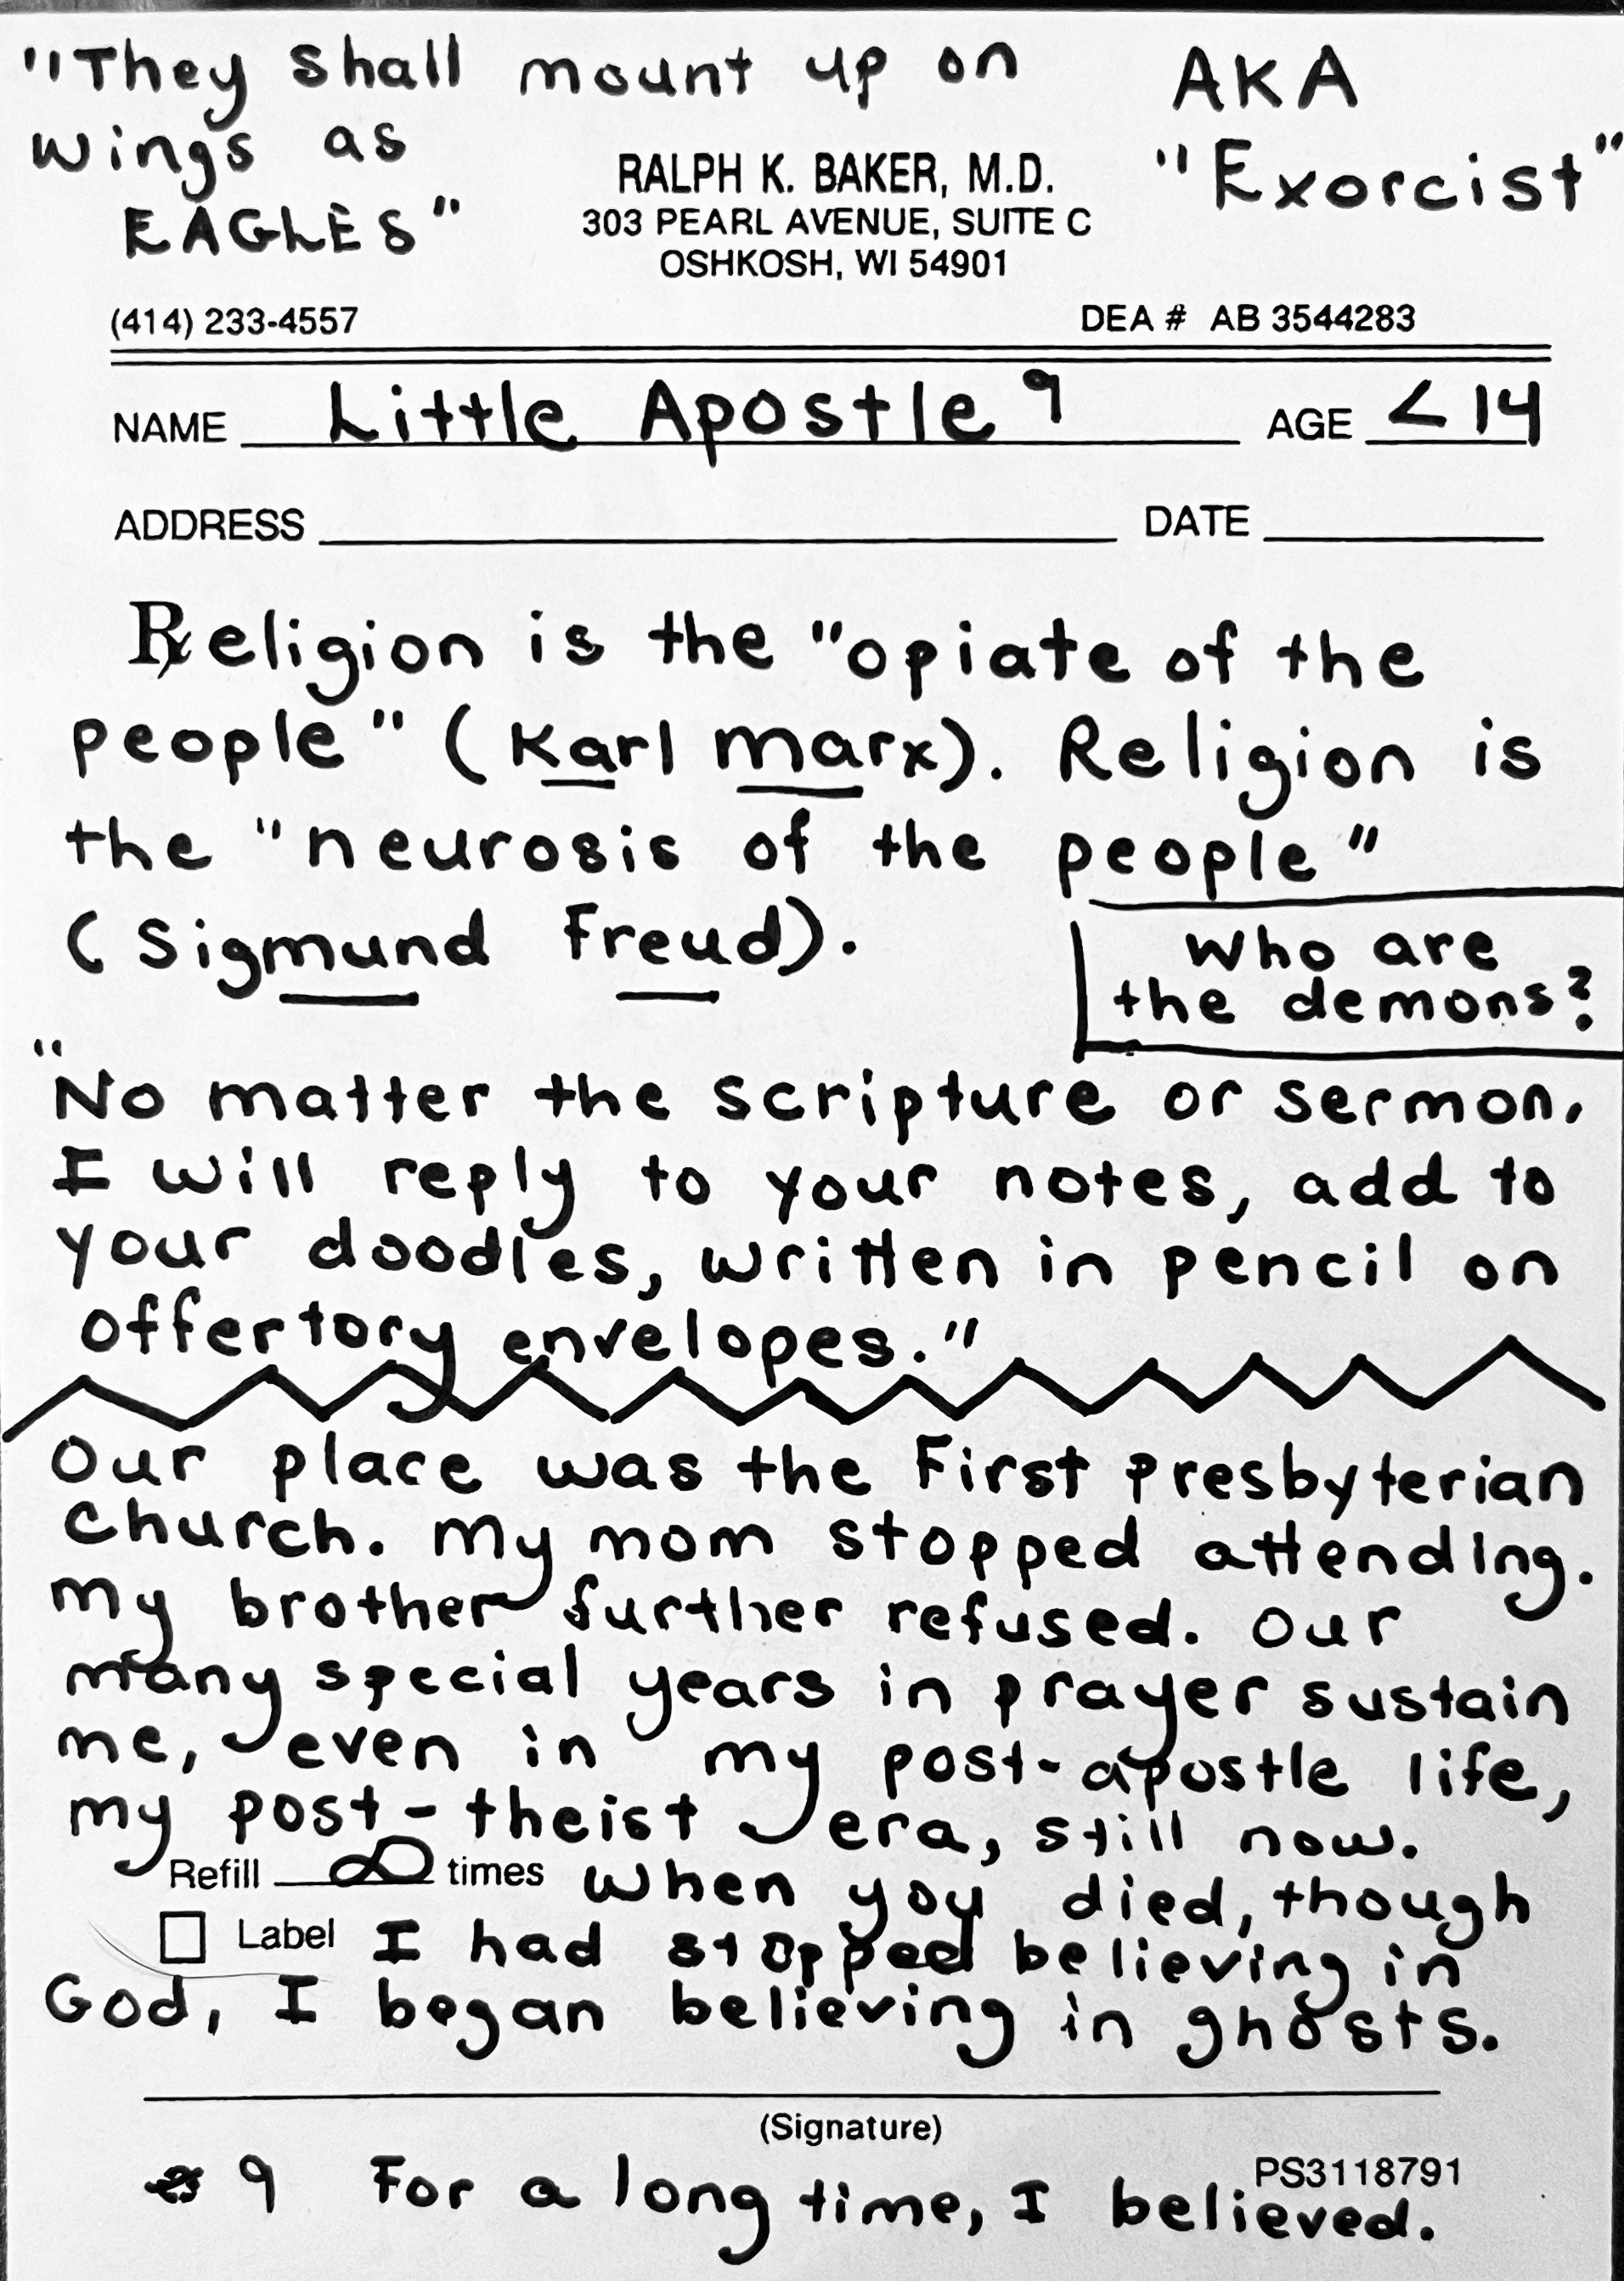 "They shall mount up on
wings as
EAGLES"
AKA
"Exorcist"
RALPH K. BAKER, M.D.
303 PEARL AVENUE, SUITE C
OSHKOSH, WI 54901
(414) 233-4557 DEA # AB 3544283
NAME Little Apostle 9 AGE < 14
ADDRESS DATE
Religion is the "opiate of the
people" (Karl Marx). Religion is
the "neurosis of the people"
(Sigmund Freud).
Who are
the demons?
"No matter the scripture or sermon,
I will reply to your notes, add to
your doodles, written in pencil on
offertory envelopes."
Our place was the First Presbyterian
Church. My mom stopped attending.
My brother further refused. Our
many special years in prayer sustain
me, even in my post-apostle life,
my post-theist era, still now.
Refill ∞ times When you died, though
Label I had stopped believing in
God, I began believing in ghosts.
(Signature)
PS3118791
9 For a long time, I believed.